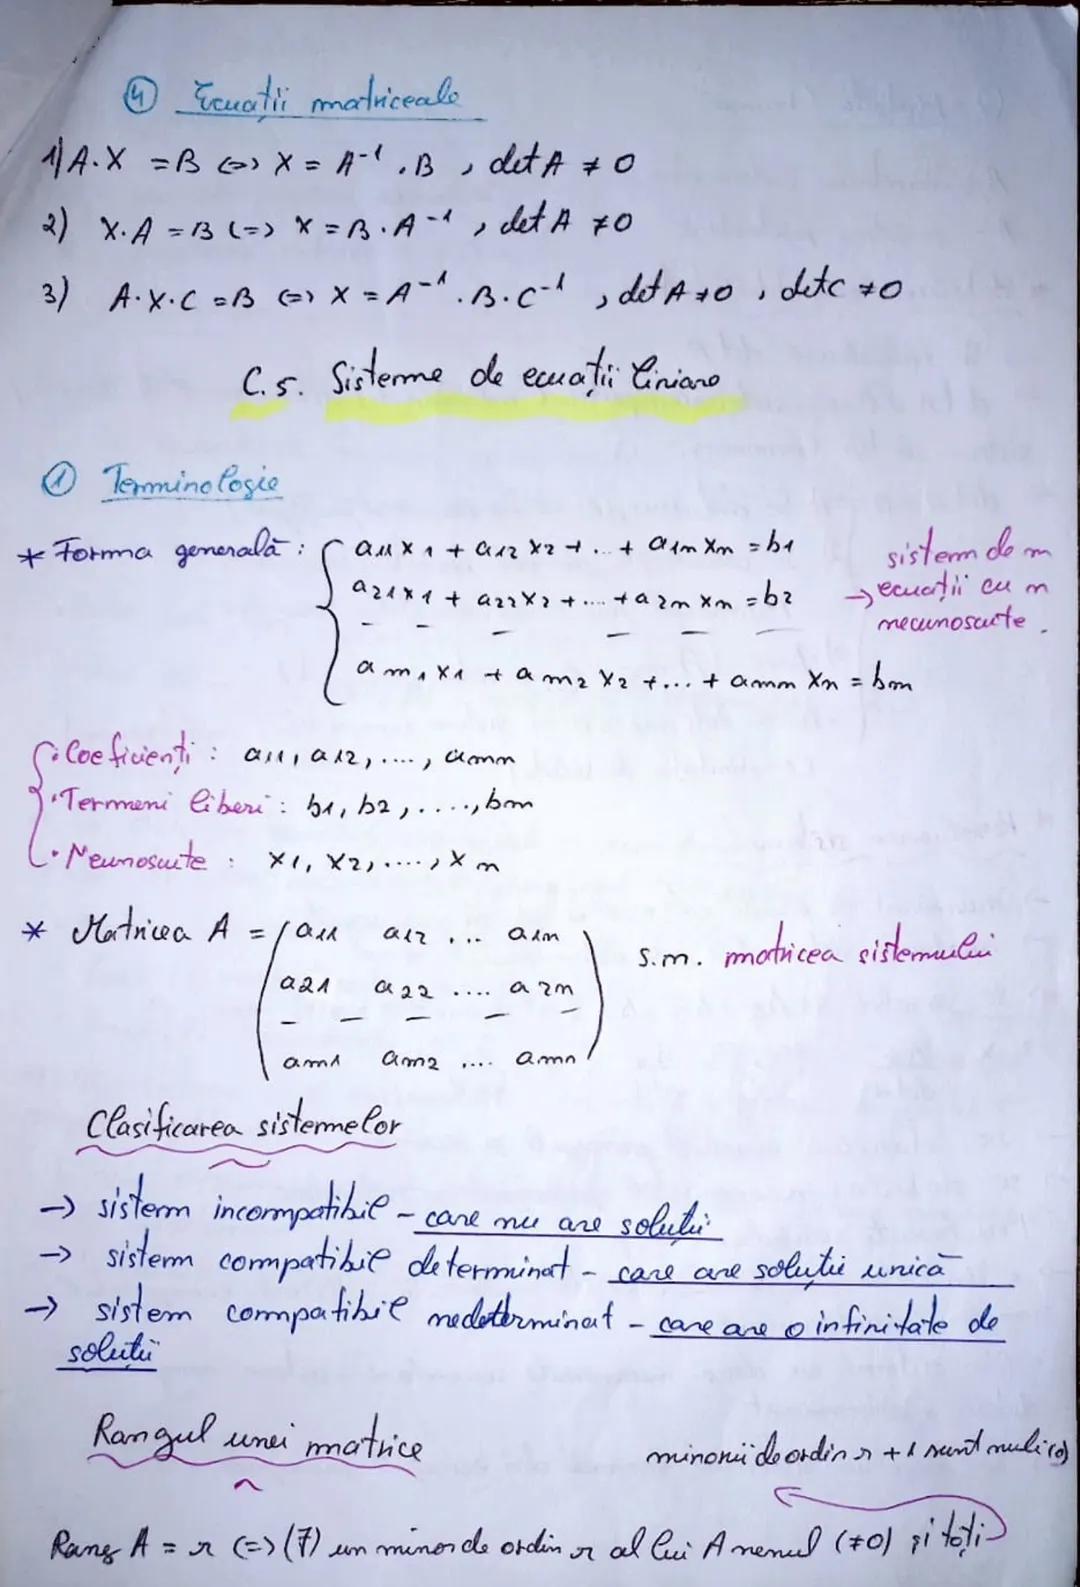 ④ Ecuații matriceale
1) A·X = B <=> X = A⁻¹·B , det A ≠ 0
2) X·A = B <=> X = B·A⁻¹ , det A ≠ 0
3) A·X·C = B <=> X = A⁻¹·B·C⁻¹ , det A ≠ 0 , det C ≠ 0
C.5. Sisteme de ecuații liniare
① Terminologie
* Forma generală : { a11 x1 + a12 x2 + ... + a1n xn = b1
a21 x1 + a22 x2 + ... + a2n xn = b2
_ _ _ _ _ _
am1 x1 + am2 x2 + ... + amn xn = bm
sistem de m
→ ecuații cu n
necunoscute.
{ · Coeficienți : a11, a12, ...., amn
· Termeni liberi : b1, b2, ...., bm
· Neunoscute : x1, x2, ...., xn
* Matricea A = ( a11 a12 ... a1n ) s.m. matricea sistemului
a21 a22 .... a2n
_ _ _ _ _
am1 am2 .... amn
Clasificarea sistemelor
→ sistem incompatibil - care nu are soluții
→ sistem compatibil determinat - care are soluție unică
→ sistem compatibil nedeterminat - care are o infinitate de
soluții
Rangul unei matrice
minorii de ordin r + 1 sunt nuli (0)
Rang A = r <=> (∃) un minor de ordin r al lui A nenul (≠0) și toți